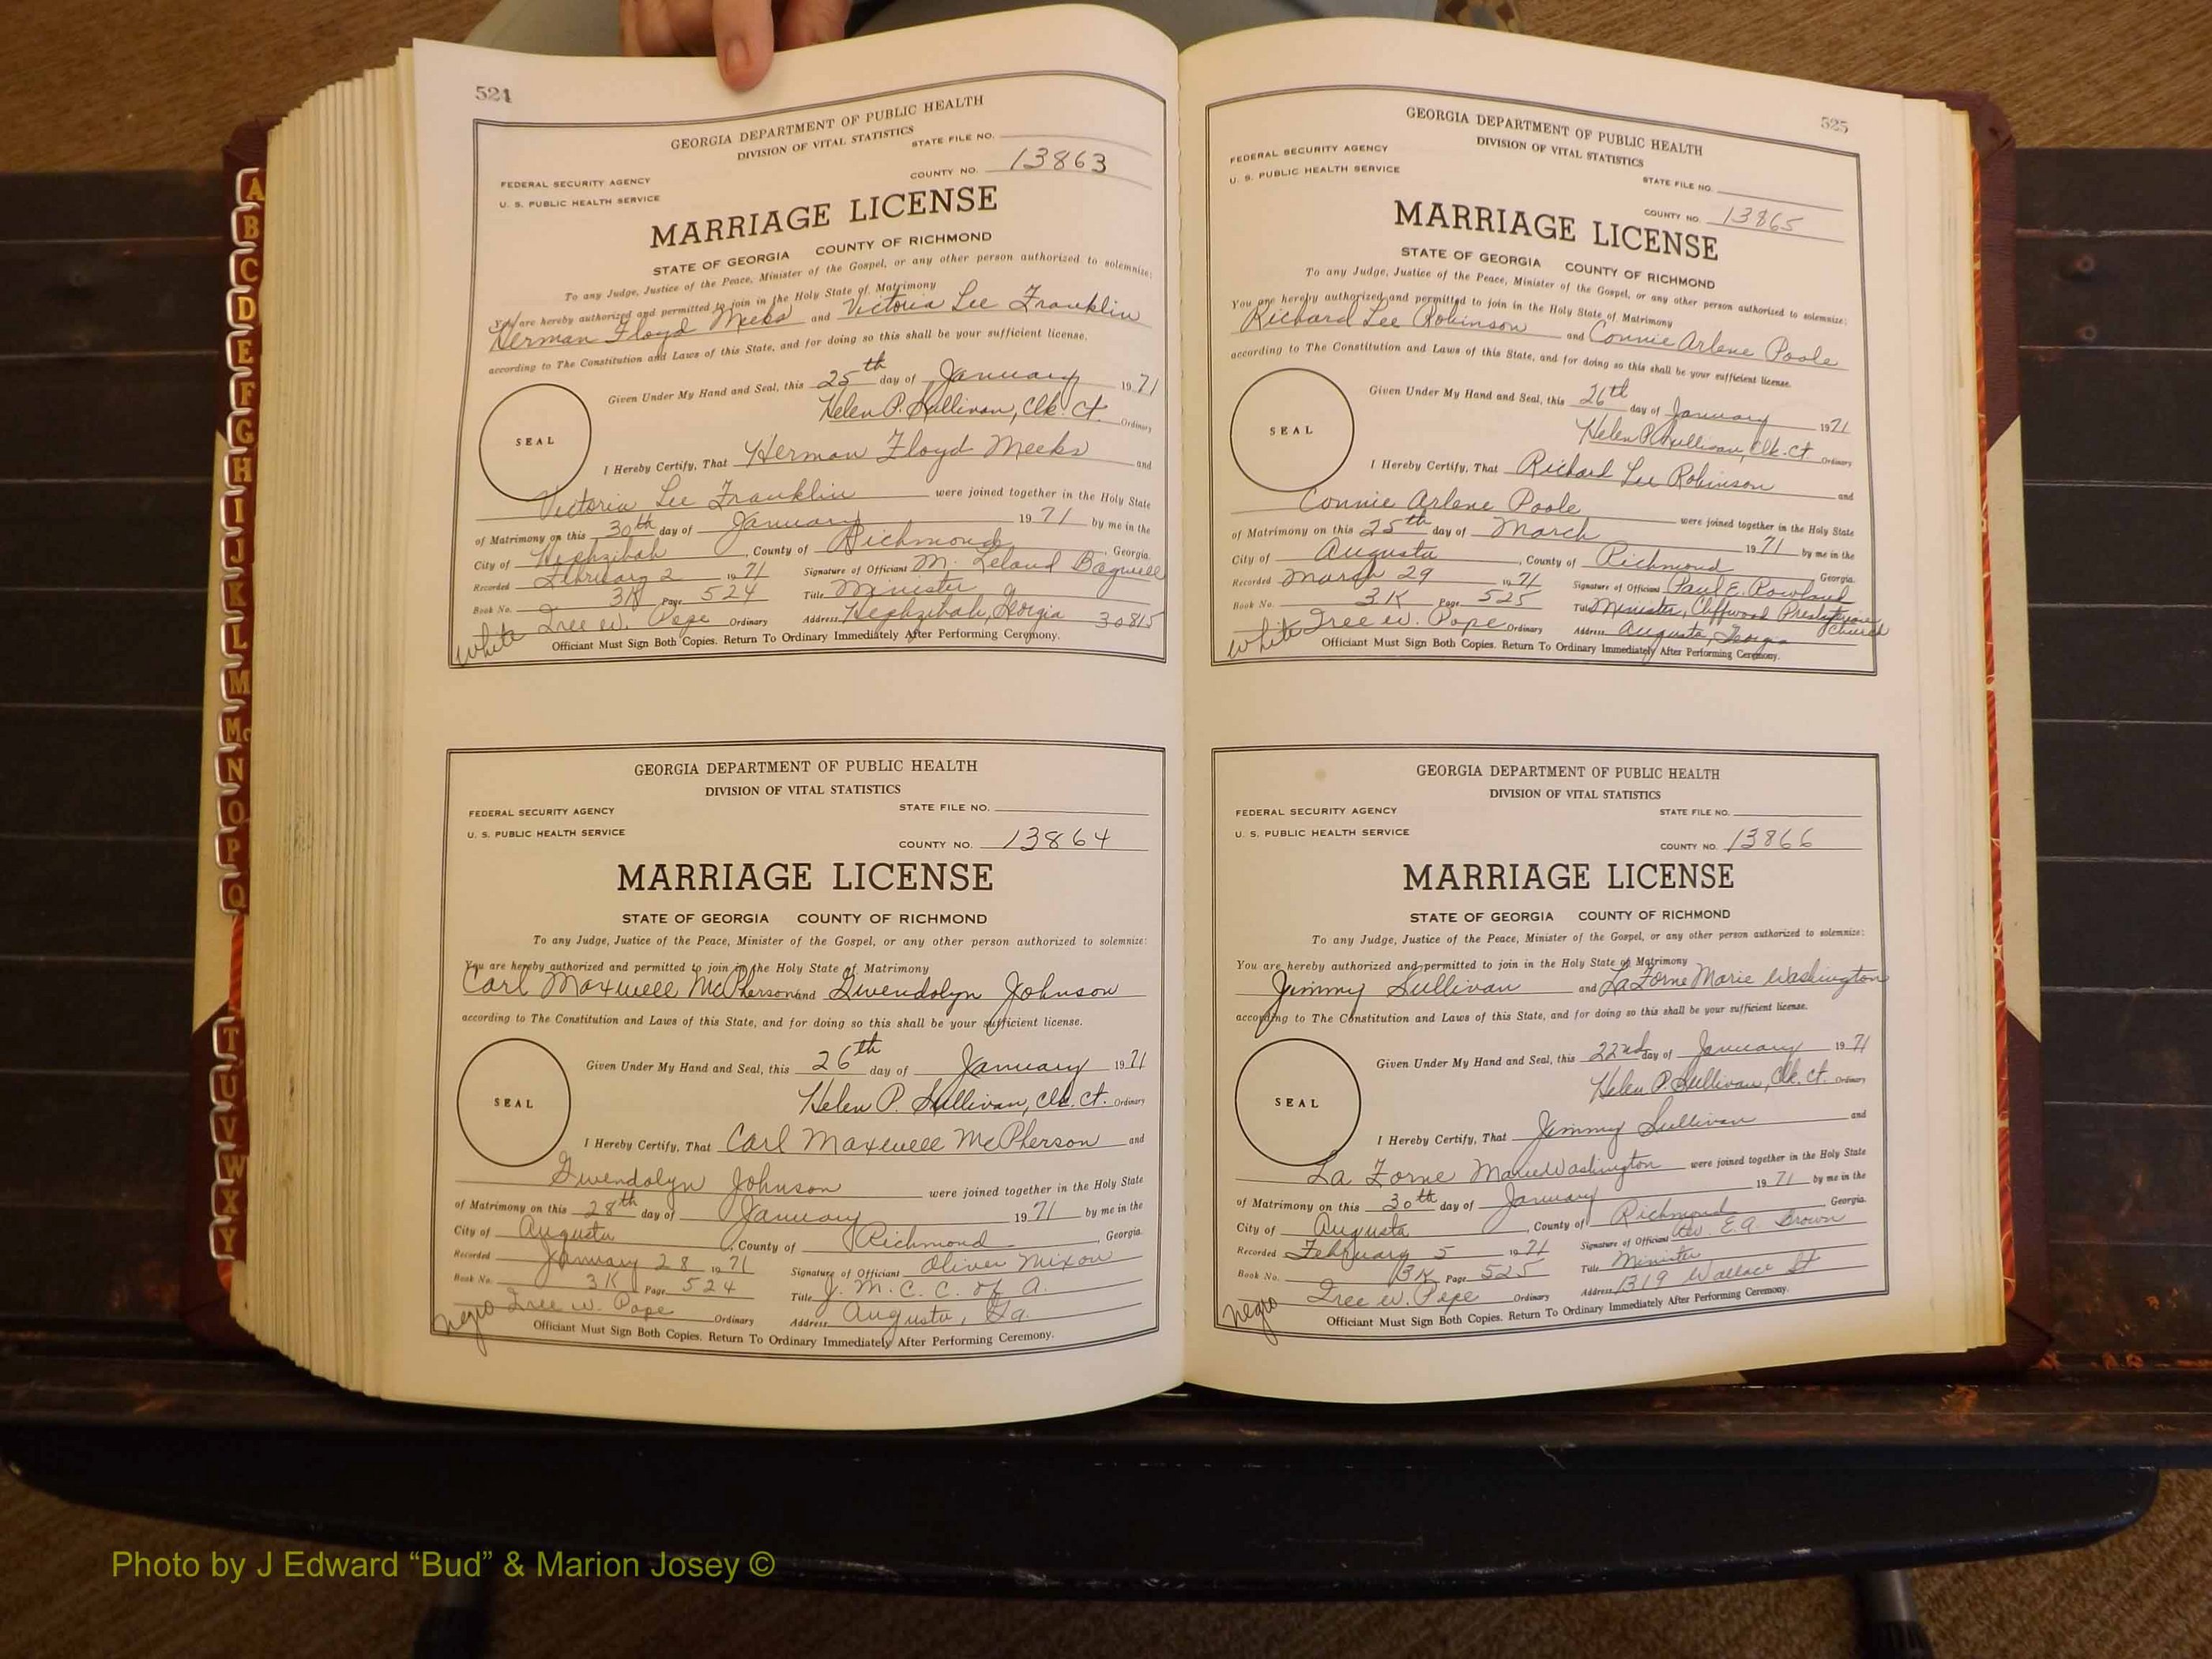 524
GEORGIA DEPARTMENT OF PUBLIC HEALTH
DIVISION OF VITAL STATISTICS
STATE FILE NO.
FEDERAL SECURITY AGENCY
U. S. PUBLIC HEALTH SERVICE
COUNTY NO. 13863
MARRIAGE LICENSE
STATE OF GEORGIA COUNTY OF RICHMOND
To any Judge, Justice of the Peace, Minister of the Gospel, or any other person authorized to solemnize:
You are hereby authorized and permitted to join in the Holy State of Matrimony
Herman Floyd Meeks and Victoria Lee Franklin
according to The Constitution and Laws of this State, and for doing so this shall be your sufficient license.
Given Under My Hand and Seal, this 25th day of January 1971
Helen P. Sullivan, Clk. Ct. Ordinary
SEAL
I Hereby Certify, That Herman Floyd Meeks and
Victoria Lee Franklin were joined together in the Holy State
of Matrimony on this 30th day of January 1971 by me in the
City of Hephzibah, County of Richmond, Georgia.
Recorded February 2 1971 Signature of Officiant M. Leland Bagwell
Book No. 3K Page 524 Title Minister
Tree W. Pope Ordinary Address Hephzibah, Georgia 30815
white Officiant Must Sign Both Copies. Return To Ordinary Immediately After Performing Ceremony.
GEORGIA DEPARTMENT OF PUBLIC HEALTH
DIVISION OF VITAL STATISTICS
FEDERAL SECURITY AGENCY STATE FILE NO.
U. S. PUBLIC HEALTH SERVICE
COUNTY NO. 13864
MARRIAGE LICENSE
STATE OF GEORGIA COUNTY OF RICHMOND
To any Judge, Justice of the Peace, Minister of the Gospel, or any other person authorized to solemnize:
You are hereby authorized and permitted to join in the Holy State of Matrimony
Carl Maxwell McPherson and Gwendolyn Johnson
according to The Constitution and Laws of this State, and for doing so this shall be your sufficient license.
Given Under My Hand and Seal, this 26th day of January 1971
Helen P. Sullivan, Clk. Ct. Ordinary
SEAL
I Hereby Certify, That Carl Maxwell McPherson and
Gwendolyn Johnson were joined together in the Holy State
of Matrimony on this 28th day of January 1971 by me in the
City of Augusta, County of Richmond, Georgia.
Recorded January 28 1971 Signature of Officiant Oliver Mixon
Book No. 3K Page 524 Title J. M. C. C. of A.
Tree W. Pope Ordinary Address Augusta, Ga.
negro Officiant Must Sign Both Copies. Return To Ordinary Immediately After Performing Ceremony.
525
GEORGIA DEPARTMENT OF PUBLIC HEALTH
DIVISION OF VITAL STATISTICS
FEDERAL SECURITY AGENCY
U. S. PUBLIC HEALTH SERVICE
STATE FILE NO.
COUNTY NO. 13865
MARRIAGE LICENSE
STATE OF GEORGIA COUNTY OF RICHMOND
To any Judge, Justice of the Peace, Minister of the Gospel, or any other person authorized to solemnize:
You are hereby authorized and permitted to join in the Holy State of Matrimony
Richard Lee Robinson and Connie Arlene Poole
according to The Constitution and Laws of this State, and for doing so this shall be your sufficient license.
Given Under My Hand and Seal, this 26th day of January 1971
Helen P. Sullivan, Clk. Ct. Ordinary
SEAL
I Hereby Certify, That Richard Lee Robinson and
Connie Arlene Poole were joined together in the Holy State
of Matrimony on this 25th day of March 1971 by me in the
City of Augusta, County of Richmond Georgia.
Recorded March 29 1971 Signature of Officiant Paul E. Rowland
Book No. 3K Page 525 Title Minister, Cliffwood Presbyterian Church
Tree W. Pope Ordinary Address Augusta, Georgia
white Officiant Must Sign Both Copies. Return To Ordinary Immediately After Performing Ceremony.
GEORGIA DEPARTMENT OF PUBLIC HEALTH
DIVISION OF VITAL STATISTICS
FEDERAL SECURITY AGENCY STATE FILE NO.
U. S. PUBLIC HEALTH SERVICE
COUNTY NO. 13866
MARRIAGE LICENSE
STATE OF GEORGIA COUNTY OF RICHMOND
To any Judge, Justice of the Peace, Minister of the Gospel, or any other person authorized to solemnize:
You are hereby authorized and permitted to join in the Holy State of Matrimony
Jimmy Sullivan and LaForne Marie Washington
according to The Constitution and Laws of this State, and for doing so this shall be your sufficient license.
Given Under My Hand and Seal, this 22nd day of January 1971
Helen P. Sullivan, Clk. Ct. Ordinary
SEAL
I Hereby Certify, That Jimmy Sullivan and
La Forne Marie Washington were joined together in the Holy State
of Matrimony on this 30th day of January 1971 by me in the
City of Augusta, County of Richmond, Georgia.
Recorded February 5 1971 Signature of Officiant Rev. E. A. Brown
Book No. 3K Page 525 Title Minister
Tree W. Pope Ordinary Address 1319 Wallace St
negro Officiant Must Sign Both Copies. Return To Ordinary Immediately After Performing Ceremony.
A
B
C
D
E
F
G
H
I
J
K
L
M
Mc
N
O
P
Q
T
U
V
W
X
Y
Photo by J Edward “Bud” & Marion Josey ©